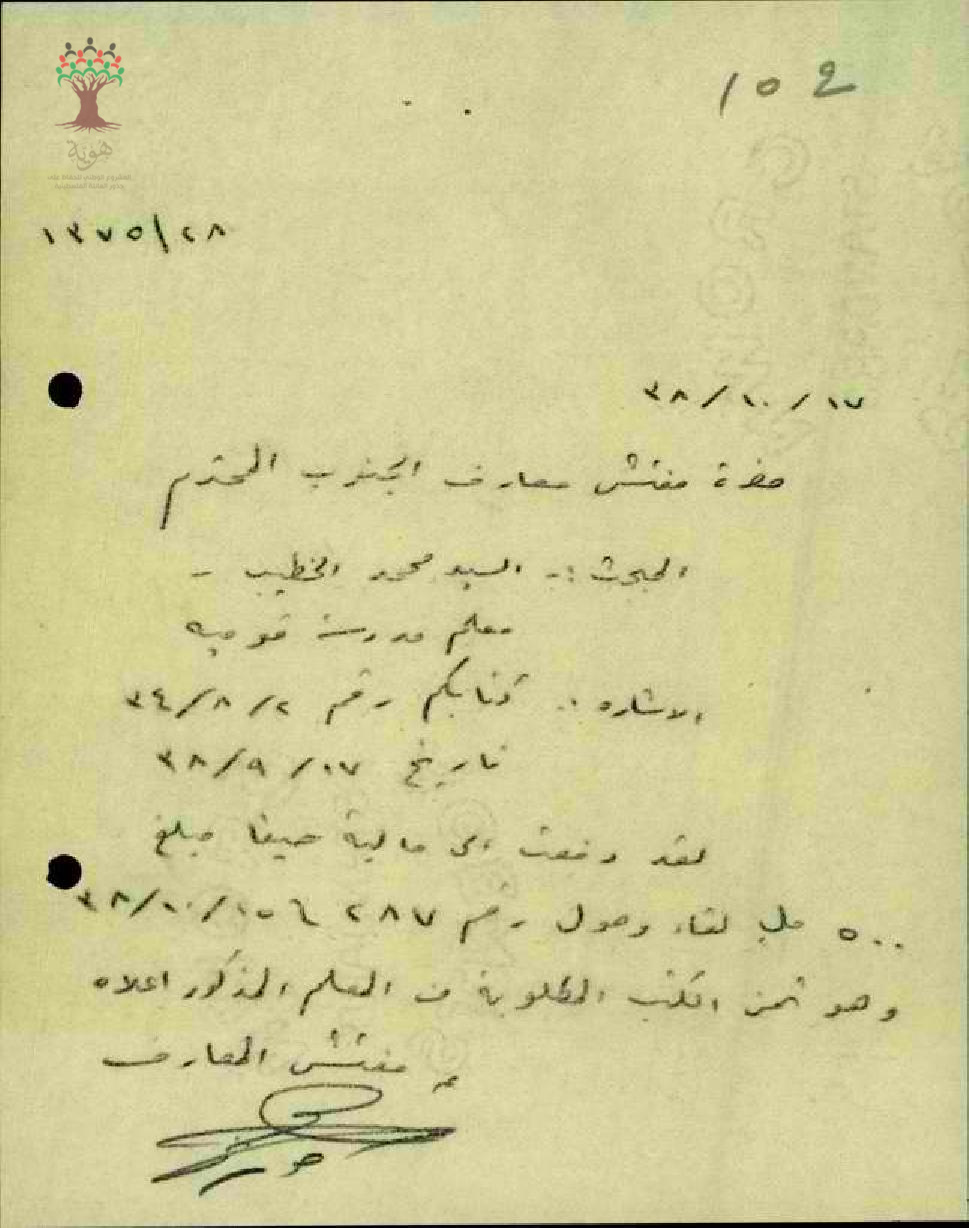 ١٥٤
هوية
١٣٧٥/٢٨
٣٨/١٠/١٧
حضرة مفتش معارف الجنوب المحترم
المبحث :- السيد محمد الخطيب -
معلم مدرسة قوميه
الاشاره :. كتابكم رقم ٣٤/٨/٢
تاريخ ٣٨/٩/١٧
لقد دفعت الى مالية حيفا مبلغ
٥٠٠ مل لقاء وصول رقم ٢٨٧
وهو ثمن الكتب المطلوبة من المعلم المذكور اعلاه
مفتش المعارف